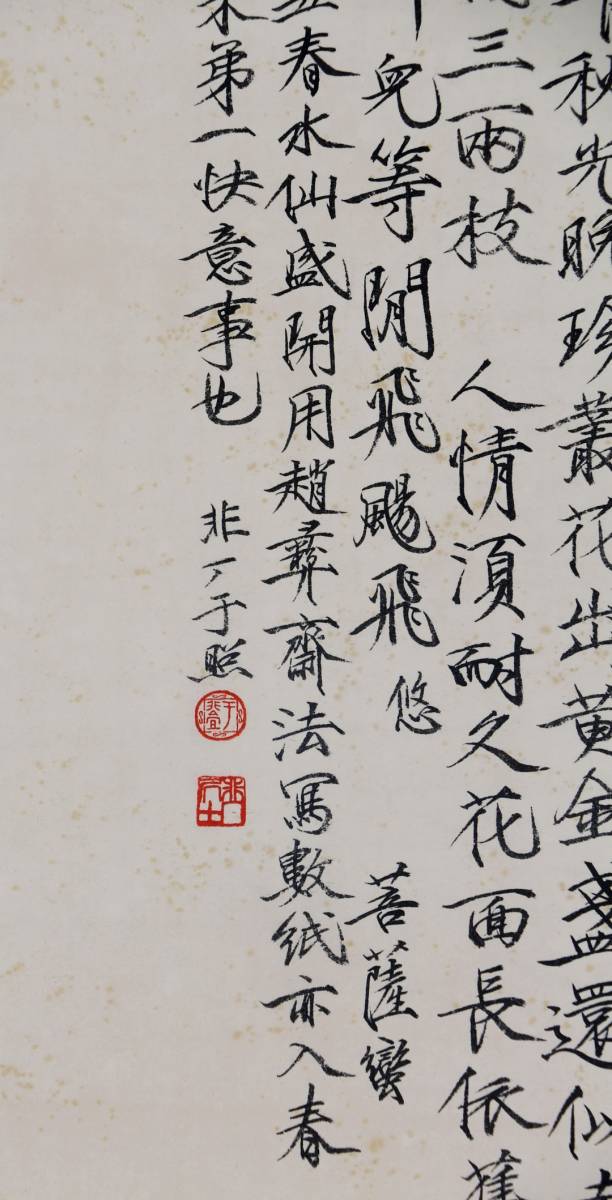 秘光晚珍叢花出黃金盞還似
三兩枝 人情須耐久花面長依舊
兒等閒飛颺飛悠 菩薩蠻
春水仙盛開用趙彝齋法寫數紙亦入春
來第一快意事也 非厂于照